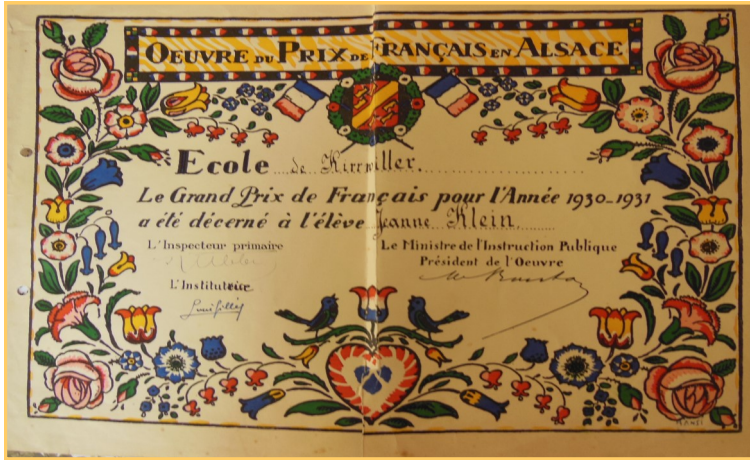 OEUVRE DU PRIX DE FRANÇAIS EN ALSACE
Ecole de Kirrwiller
Le Grand Prix de Français pour l'Année 1930-1931
a été décerné à l'élève Jeanne Klein
L'Inspecteur primaire
Le Ministre de l'Instruction Publique
Président de l'Oeuvre
L'Instituteur